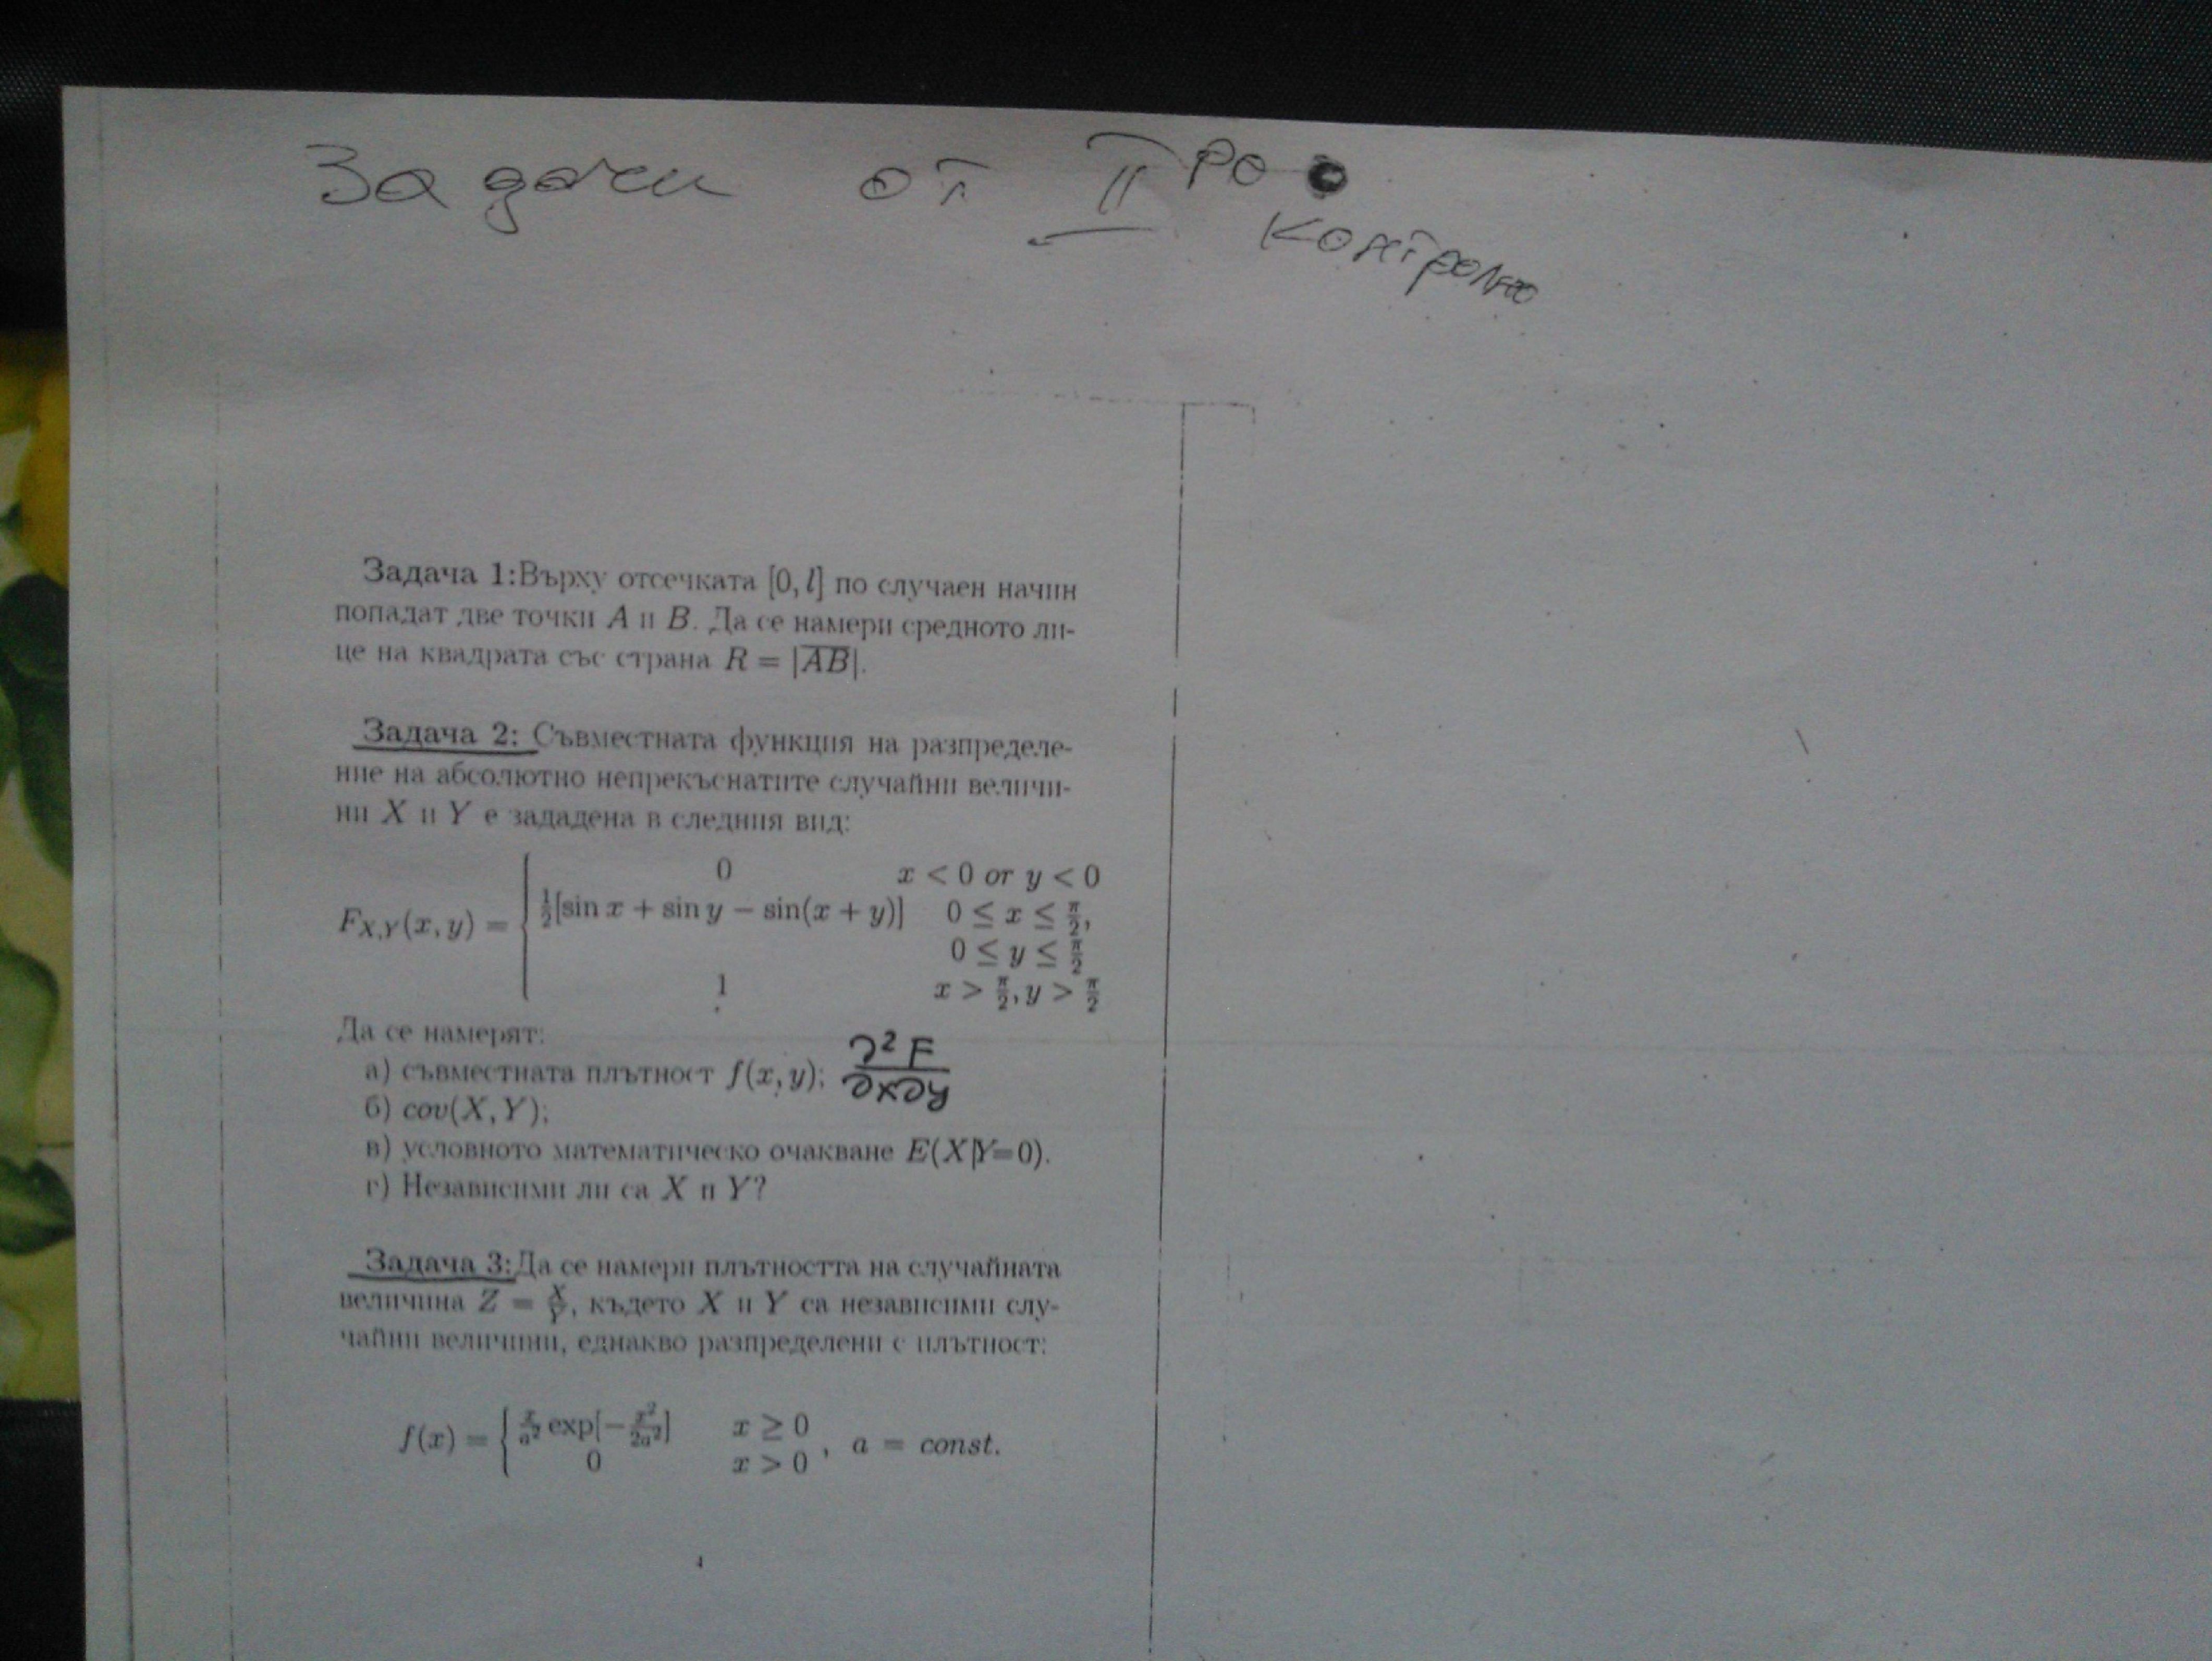 Задачи от II РО
контролно
Задача 1:Върху отсечката [0, l] по случаен начин
попадат две точки A и B. Да се намери средното ли-
це на квадрата със страна R = |AB|.
Задача 2: Съвместната функция на разпределе-
ние на абсолютно непрекъснатите случайни величи-
ни X и Y е зададена в следния вид:
0 x < 0 or y < 0
F_{X,Y}(x, y) = { ½[sin x + sin y − sin(x + y)] 0 ≤ x ≤ π/2,
0 ≤ y ≤ π/2
1 x > π/2, y > π/2
Да се намерят:
а) съвместната плътност f(x, y); ∂²F/∂x∂y
б) cov(X, Y);
в) условното математическо очакване E(X|Y=0).
г) Независими ли са X и Y?
Задача 3:Да се намери плътността на случайната
величина Z = X/Y, където X и Y са независими слу-
чайни величини, еднакво разпределени с плътност:
f(x) = { x/a² exp[−x²/2a²] x ≥ 0
0 x > 0 , a = const.